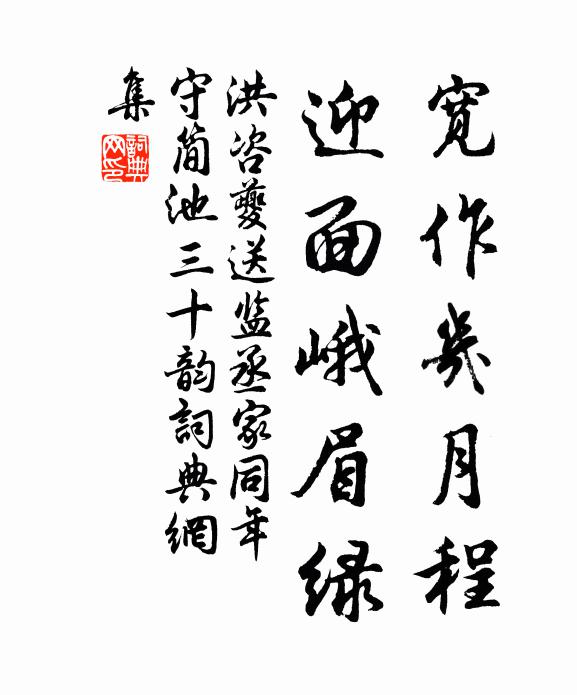 宽作几月程
迎面峨眉绿
洪咨夔送监丞家同年
守简池三十韵詞典網
集
詞典
网印